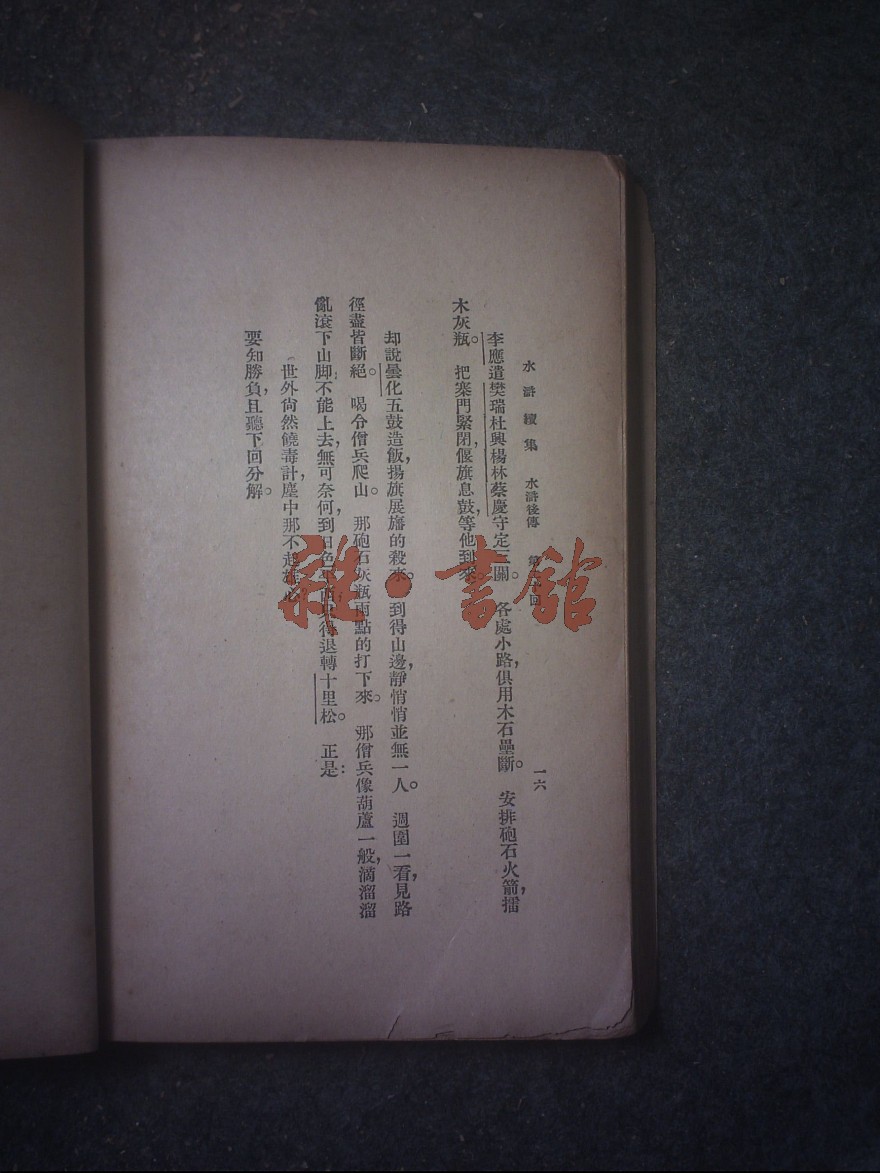 水滸續集　水滸後傳　第　回　一六
李應遣樊瑞杜興楊林蔡慶守定三關。各處小路，俱用木石壘斷。安排砲石火箭，擂
木灰瓶。把寨門緊閉，偃旗息鼓，等他到來。
却說曇化五鼓造飯，揚旗展旛的殺來。到得山邊，靜悄悄並無一人。週圍一看，見路
徑盡皆斷絕。喝令僧兵爬山。那砲石灰瓶雨點的打下來。那僧兵像葫蘆一般，滴溜溜
亂滾下山脚；不能上去，無可奈何，到日色　得退轉十里松。正是：
世外尙然饒毒計，塵中那不起　心？
要知勝負，且聽下回分解。
書館